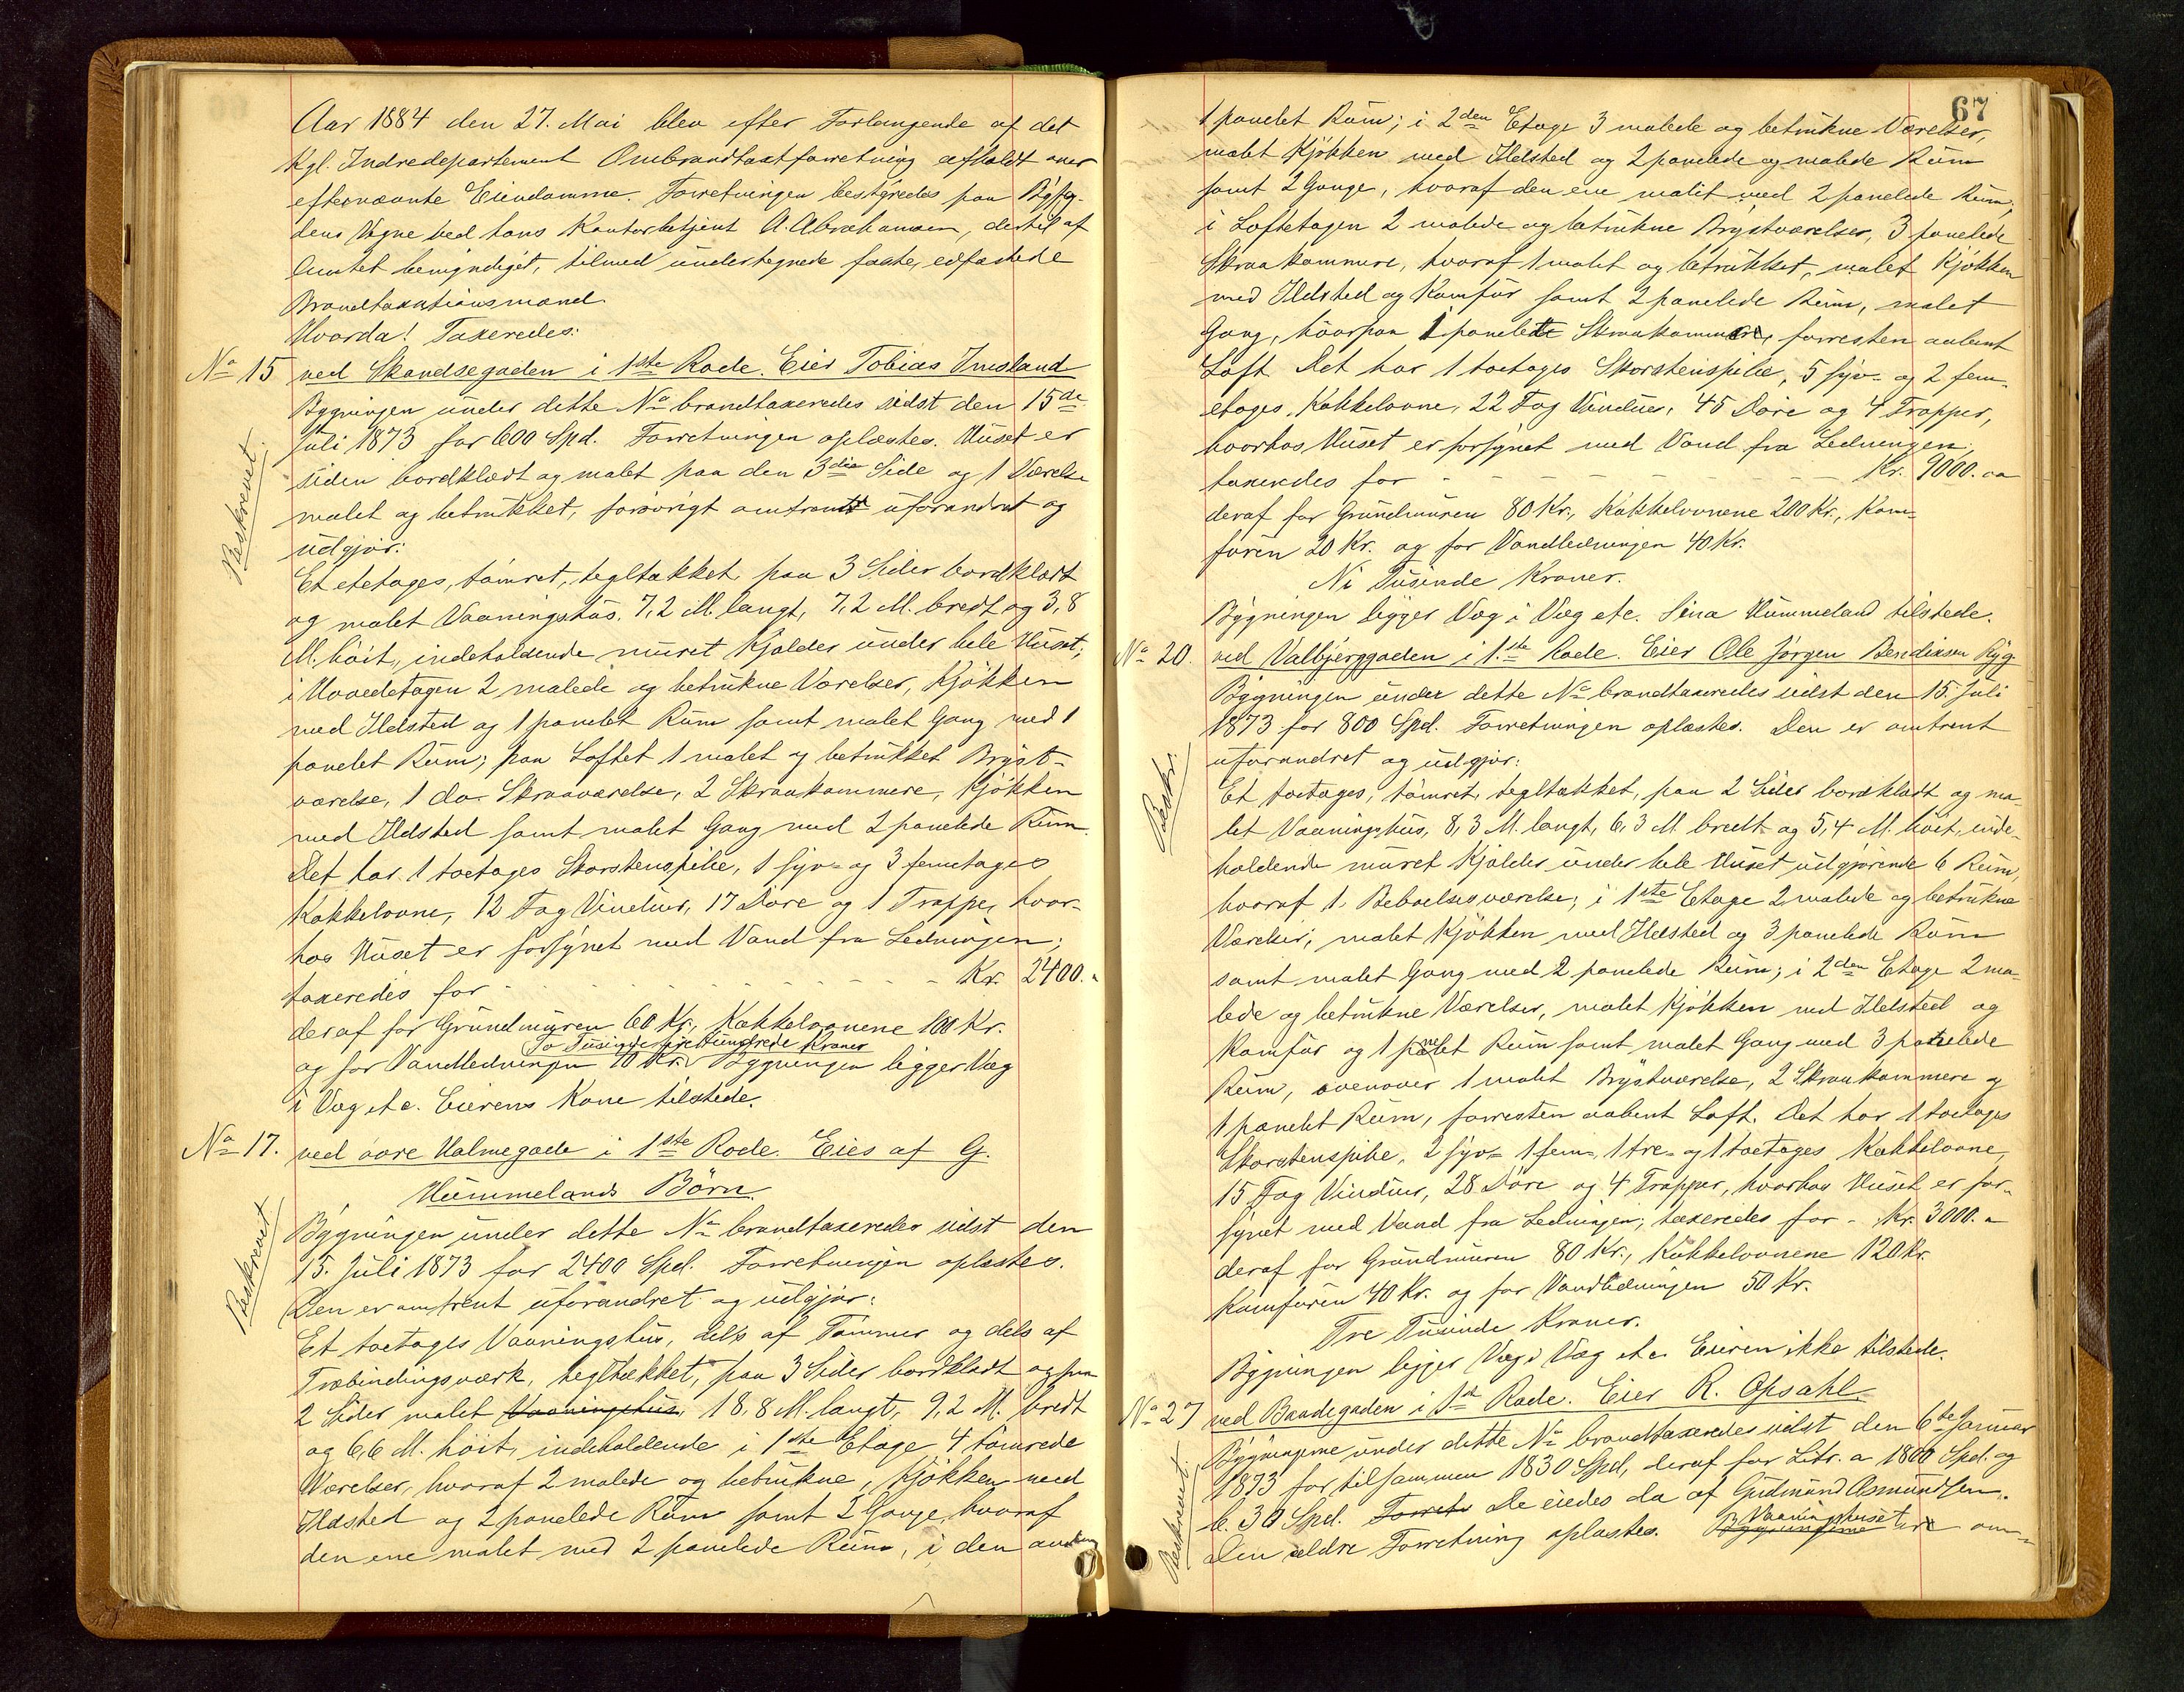 Aar 1884 den 27. Mai blev efter Forlangende af det
Kgl. Indredepartement Ombrandtaxtforretning afholdt over
efternævnte Eiendomme. Forretningen bestyredes paa Byfog-
dens Vegne ved hans Kontorbetjent A. Abrahamsen, dertil af
Amtet bemyndiget, tilmed undertegnede faste, edfæstede
Brandtaxationsmænd.
Hvorda! Taxeredes:
No 15 ved Skandsegaden i 1ste Rode. Eier Tobias Imsland
Beskrevet.
Bygningen under dette No brandtaxeredes sidst den 15de
Juli 1873 for 600 Spd. Forretningen oplæstes. Huset er
siden bordklædt og malet paa den 3die Side og 1 Værelse
malet og betrukket, forøvrigt omtrent uforandret og
udgjør:
Et etetages, tømret, tegltækket, paa 3 Sider bordklædt
og malet Vaaningshus, 7,2 M. langt, 7,2 M. bredt og 3,8
M. høit, indeholdende muret Kjælder under hele Huset;
i Hovedetagen 2 malede og betrukne Værelser, Kjøkken
med Ildsted og 1 panelet Rum samt malet Gang med 1
panelet Rum; paa Loftet 1 malet og betrukket Bryst-
værelse, 1 do. Skraaværelse, 2 Skraakammere, Kjøkken
med Ildsted samt malet Gang med 2 panelede Rum.
Det har 1 toetages Skorstenspibe, 1 syv- og 3 femetages
Kakkelovne, 12 Fag Vinduer, 17 Døre og 1 Trappe, hvor-
hos Huset er forsynet med Vand fra Ledningen;
taxeredes for - - - - - - - - Kr. 2400.
deraf for Grundmuren 60 Kr., Kakkelovnene 100 Kr.
To Tusinde fire Hundrede Kroner
og for Vandledningen 10 Kr. Bygningen ligger Væg
i Væg etc. Eierens Kone tilstede.
No 17. ved øvre Holmegade i 1ste Rode. Eies af G.
Hummelands Børn.
Beskrevet
Bygningen under dette No brandtaxeredes sidst den
15. Juli 1873 for 2400 Spd. Forretningen oplæstes.
Den er omtrent uforandret og udgjør:
Et toetages Vaaningshus, dels af Tømmer og dels af
Træbindingsværk, tegltækket, paa 3 Sider bordklædt og paa
2 Sider malet Vaaningshus, 18,8 M. langt, 9,2 M. bredt
og 6,6 M. høit, indeholdende i 1ste Etage 4 tømrede
Værelser, hvoraf 2 malede og betrukne, Kjøkken med
Ildsted og 2 panelede Rum samt 2 Gange, hvoraf
den ene malet med 2 panelede Rum, i den anden
67
1 panelet Rum; i 2den Etage 3 malede og betrukne Værelser,
malet Kjøkken med Ildsted og 2 panelede og malede Rum
samt 2 Gange, hvoraf den ene malet med 2 panelede Rum,
i Loftetagen 2 malede og betrukne Brystværelser, 3 panelede
Skraakammere, hvoraf 1 malet og betrukket, malet Kjøkken
med Ildsted og Komfur samt 2 panelede Rum, malet
Gang, hvorpaa 1 panelet Skraakammer, forresten aabent
Loft. Det har 1 toetages Skorstenspibe, 5 syv- og 2 fem-
etages Kakkelovne, 22 Fag Vinduer, 45 Døre og 4 Trapper,
hvorhos Huset er forsynet med Vand fra Ledningen;
taxeredes for - - - - - - Kr. 9000.
deraf for Grundmuren 80 Kr., Kakkelovnene 200 Kr., Kom-
furen 20 Kr. og for Vandledningen 40 Kr.
Ni Tusinde Kroner.
Bygningen ligger Væg i Væg etc. Sina Hummeland tilstede.
No 20. ved Valbjerggaden i 1ste Rode. Eier Ole Jørgen Bendiksen Ryg
Beskr.
Bygningen under dette No brandtaxeredes sidst den 15. Juli
1873 for 800 Spd. Forretningen oplæstes. Den er omtrent
uforandret og udgjør:
Et toetages, tømret, tegltækket, paa 2 Sider bordklædt og ma-
let Vaaningshus, 8,3 M. langt, 6,3 M bredt og 5,4 M. høit, inde-
holdende muret Kjælder under hele Huset udgjørende 6 Rum,
hvoraf 1 Beboelsesværelse; i 1ste Etage 2 malede og betrukne
Værelser, malet Kjøkken med Ildsted og 3 panelede Rum
samt malet Gang med 2 panelede Rum; i 2den Etage 2 ma-
lede og betrukne Værelser, malet Kjøkken med Ildsted og
Komfur og 1 panelet Rum samt malet Gang med 3 panelede
Rum, ovenover 1 malet Brystværelse, 2 Skraakammere og
1 panelet Rum, forresten aabent Loft. Det har 1 toetages
Skorstenspibe, 2 syv- 1 fem- 1 tre- og 1 toetages Kakkelovne,
15 Fag Vinduer, 28 Døre og 4 Trapper, hvorhos Huset er for-
synet med Vand fra Ledningen; taxeredes for - Kr. 3000.
deraf for Grundmuren 80 Kr., Kakkelovnene 120 Kr.
Komfuren 40 Kr. og for Vandledningen 50 Kr.
Tre Tusinde Kroner.
Bygningen ligger Væg i Væg etc. Eieren ikke tilstede.
No 27 ved Bandegaden i 1st Rode. Eier R. Opsahl
Beskrevet.
Bygningerne under dette No brandtaxeredes sidst den 6te Januar
1873 for tilsammen 1830 Spd, deraf for Litr. a 1800 Spd. og
b. 30 Spd. Forret De eiedes da af Gudmund Asmundsen.
Vaaningshuset
Den ældre Forretning oplæstes. Bygningerne er om-